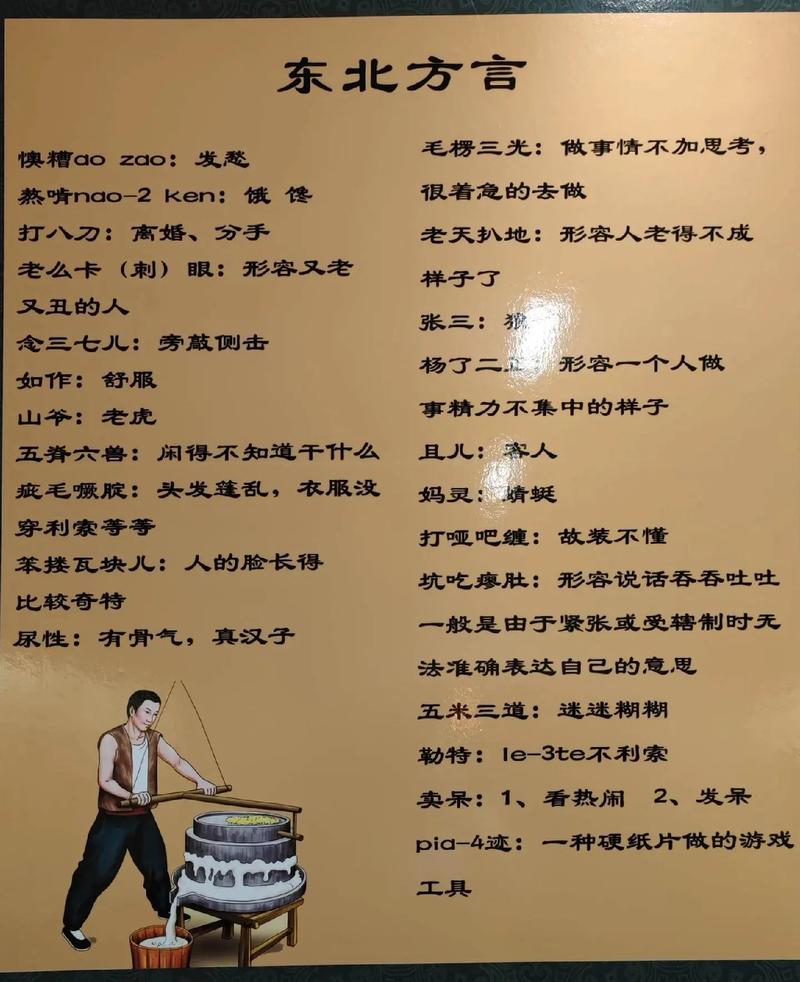 东北方言
懊糟ao zao：发愁
熬啃nao-2 ken：饿 馋
打八刀：离婚、分手
老么卡（刺）眼：形容又老
又丑的人
念三七儿：旁敲侧击
如作：舒服
山爷：老虎
五脊六兽：闲得不知道干什么
疵毛噘腚：头发篷乱，衣服没
穿利索等等
笨搂瓦块儿：人的脸长得
比较奇特
尿性：有骨气，真汉子
毛楞三光：做事情不加思考，
很着急的去做
老天扒地：形容人老得不成
样子了
张三：
杨了二正：形容一个人做
事精力不集中的样子
且儿：客人
妈灵：蜻蜓
打哑吧缠：故装不懂
坑吃瘪肚：形容说话吞吞吐吐
一般是由于紧张或受辖制时无
法准确表达自己的意思
五米三道：迷迷糊糊
勒特：le-3te不利索
卖呆：1、看热闹 2、发呆
pia-4迹：一种硬纸片做的游戏
工具